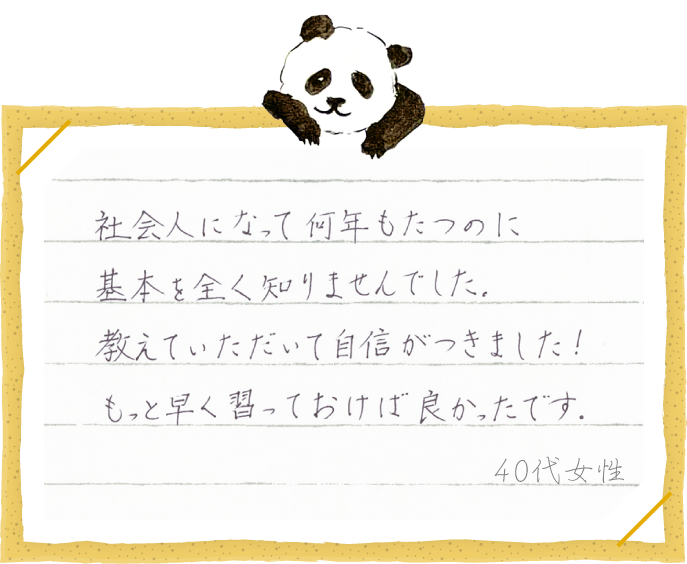 社会人になって何年もたつのに
基本を全く知りませんでした。
教えていただいて自信がつきました!
もっと早く習っておけば良かったです.
40代女性